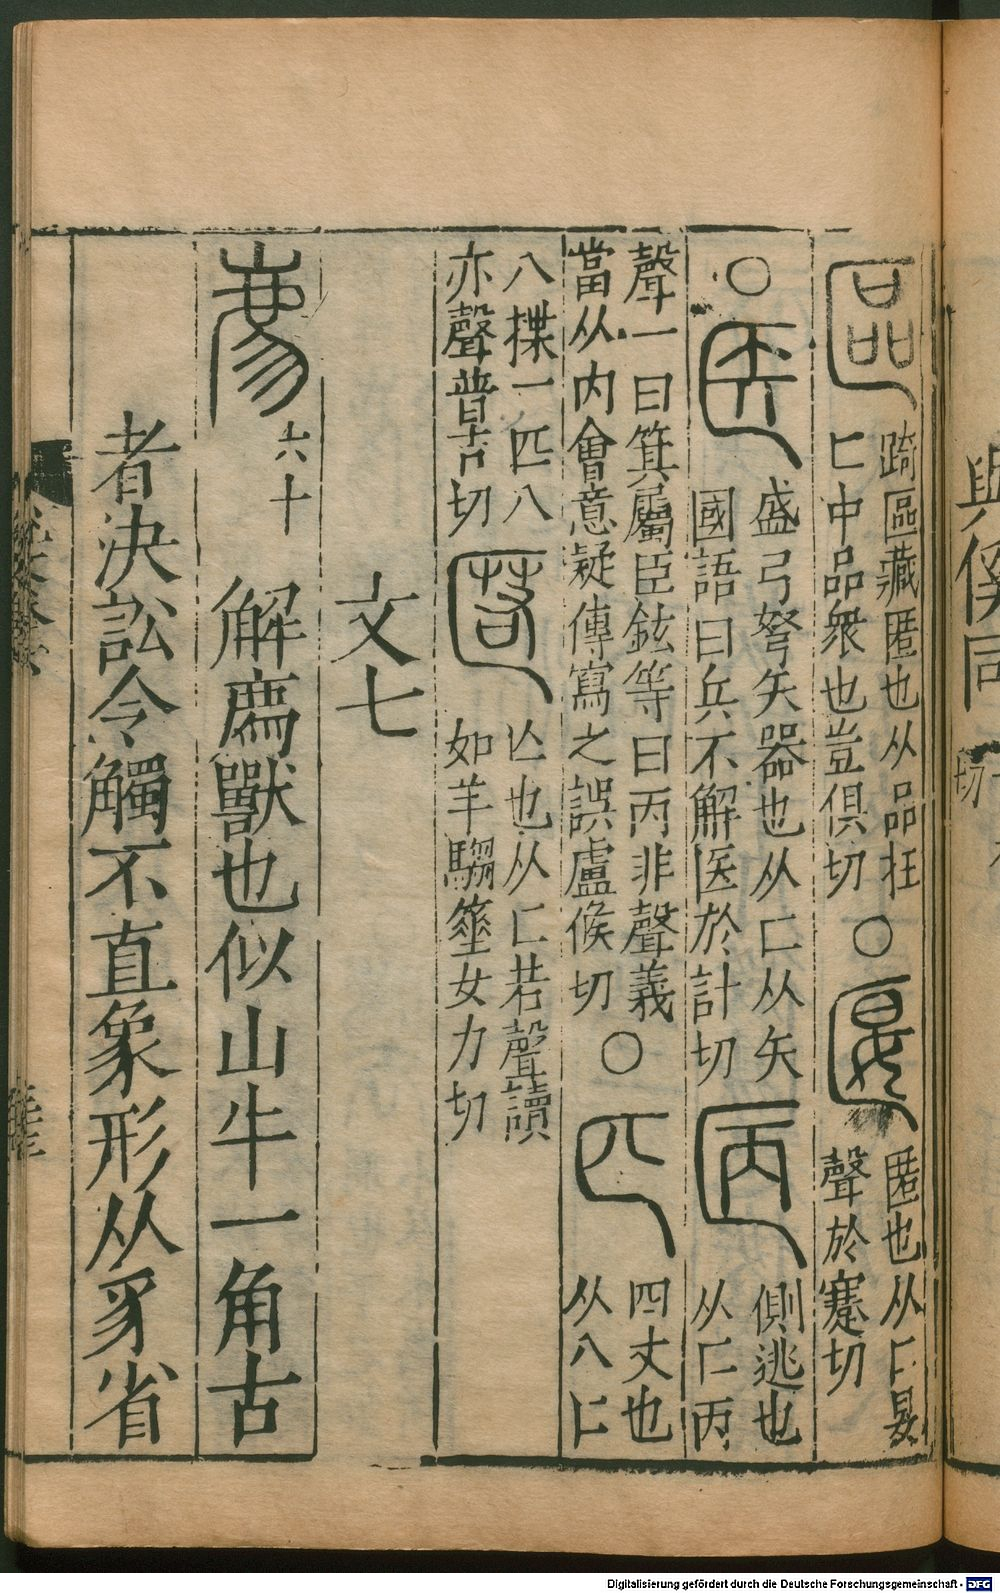 區 踦區藏匿也从品㧟
匸中品衆也豈俱切 ○ 匽 匿也从匸妟
聲於蹇切
○ 医 盛弓弩矢器也从匸从矢
國語曰兵不解医於計切 㔷 側逃也
从匸丙
聲一曰箕屬臣鉉等曰丙非聲義
當从内會意疑傳寫之誤盧候切 ○ 匹 四丈也
从八匸
八揲一匹八
亦聲普吉切 匿 亾也从匸若聲讀
如羊騶箠女力切
文七
廌 六十 解廌獸也似山牛一角古
者決訟令觸不直象形从豸省
與傒同
切
Digitalisierung gefördert durch die Deutsche Forschungsgemeinschaft - DFG